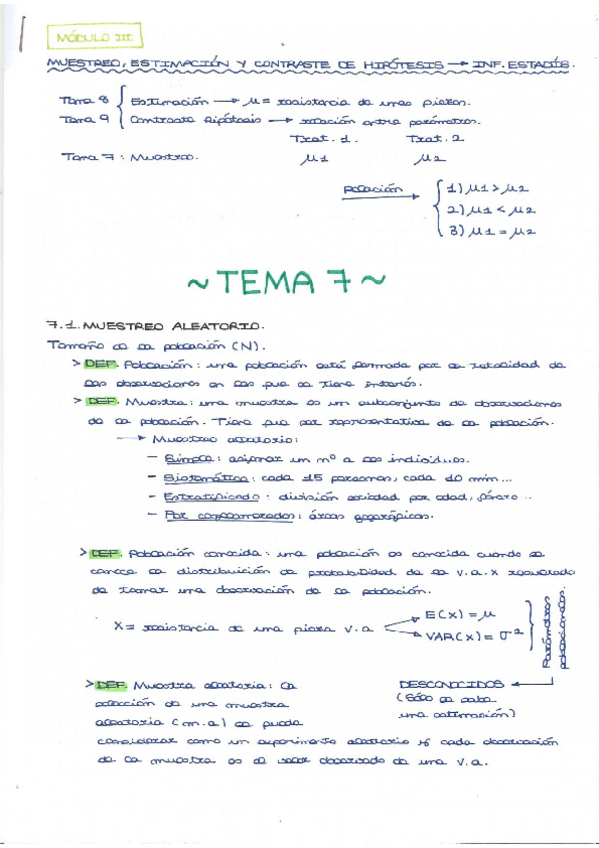 MÓDULO III
MUESTREO, ESTIMACIÓN Y CONTRASTE DE HIPÓTESIS → INF. ESTADÍS.
Tema 8 { Estimación → μ = resistencia de unas piezas.
Tema 9 { Contraste hipótesis → relación entre parámetros.
Trat. 1. Trat. 2
Tema 7: Muestreo. μ1 μ2
relación → { 1) μ1 > μ2
2) μ1 < μ2
3) μ1 = μ2
~ TEMA 7 ~
7.1. MUESTREO ALEATORIO.
Tamaño de la población (N).
> DEF. Población: una población está formada por la totalidad de
las observaciones en las que se tiene interés.
> DEF. Muestra: una muestra es un subconjunto de observaciones
de la población. Tiene que ser representativa de la población.
→ Muestreo aleatorio:
- Simple: asignar un nº a los individuos.
- Sistemático: cada 15 personas, cada 10 min...
- Estratificado: división sociedad por edad, género...
- Por conglomerados: áreas geográficas.
> DEF. Población conocida: una población es conocida cuando se
conoce la distribución de probabilidad de la v.a. X resultado
de tomar una observación de la población.
X = resistencia de una pieza v.a
E(X) = μ
VAR(X) = σ²
Parámetros
poblacionales.
> DEF. Muestra aleatoria: la
DESCONOCIDOS
selección de una muestra
(Sólo se sabe
aleatoria (m.a) se puede
una estimación)
considerar como un experimento aleatorio y cada observación
de la muestra es el valor observado de una v.a.